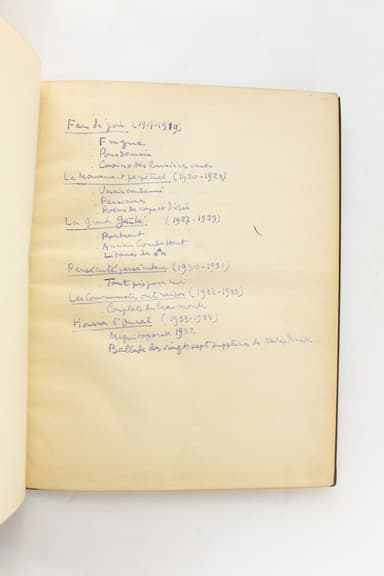 Feu de joie (1917-1919)
Fugue
Pour demain
Casino des lumières crues
Le Mouvement perpétuel (1920-1924)
Persiennes
Poème de cape et d'épée
La grande gaîté (1927-1929)
Portrait
Ancien Combattant
Litanies de
Persécuté persécuteur (1930-1931)
Tant pis pour moi
Les Communistes ont raison (1932-1933)
Couplets du beau monde
Hourra l'Oural (1933-1934)
Magnitogorsk 1932
Ballade des vingt sept suppliciés de